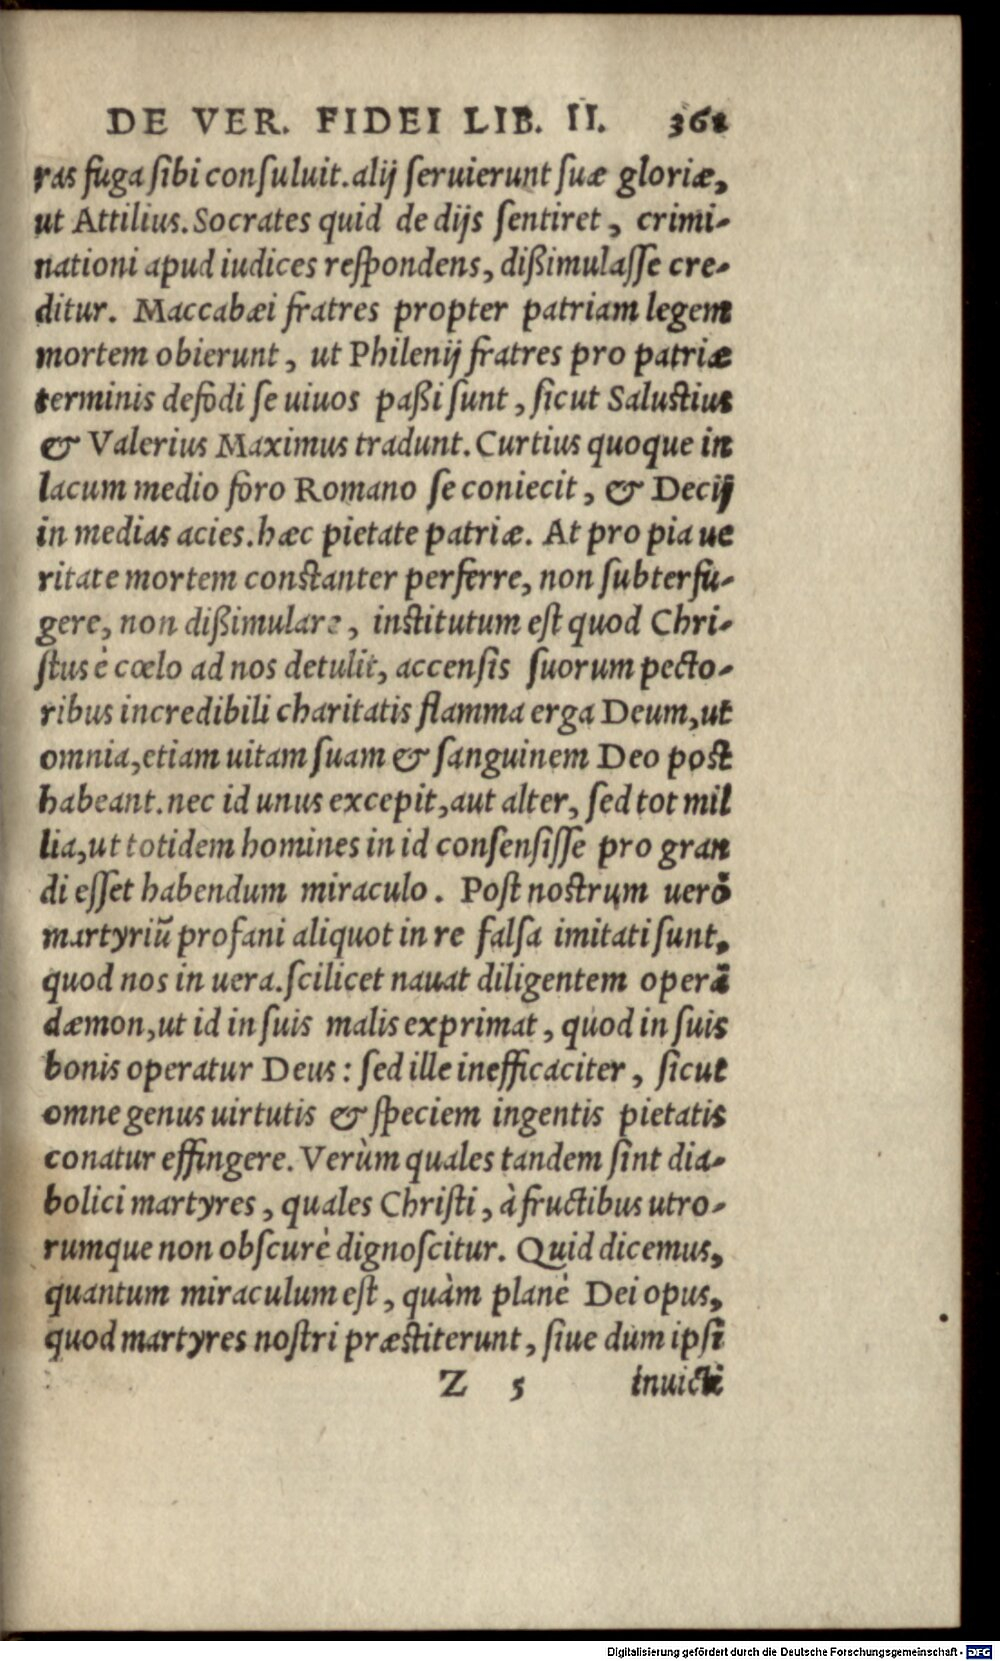 DE VER. FIDEI LIB. II. 361
ras fuga sibi consuluit. alij seruierunt suæ gloriæ,
ut Attilius. Socrates quid de dijs sentiret, crimi-
nationi apud iudices respondens, dißimulasse cre-
ditur. Maccabæi fratres propter patriam legem
mortem obierunt, ut Philenij fratres pro patriæ
terminis defodi se uiuos paßi sunt, sicut Salustius
& Valerius Maximus tradunt. Curtius quoque in
lacum medio foro Romano se coniecit, & Decij
in medias acies. hæc pietate patriæ. At pro pia ue
ritate mortem constanter perferre, non subterfu-
gere, non dißimulare, institutum est quod Chri-
stus è cœlo ad nos detulit, accensis suorum pecto-
ribus incredibili charitatis flamma erga Deum, ut
omnia, etiam uitam suam & sanguinem Deo post
habeant. nec id unus excepit, aut alter, sed tot mil
lia, ut totidem homines in id consensisse pro gran
di esset habendum miraculo. Post nostrum uerò
martyriũ profani aliquot in re falsa imitati sunt,
quod nos in uera. scilicet nauat diligentem operã
dæmon, ut id in suis malis exprimat, quod in suis
bonis operatur Deus: sed ille inefficaciter, sicut
omne genus uirtutis & speciem ingentis pietatis
conatur effingere. Verùm quales tandem sint dia-
bolici martyres, quales Christi, à fructibus utro-
rumque non obscurè dignoscitur. Quid dicemus,
quantum miraculum est, quàm planè Dei opus,
quod martyres nostri præstiterunt, siue dum ipsi
Z 5 inuicti
Digitalisierung gefördert durch die Deutsche Forschungsgemeinschaft - DFG